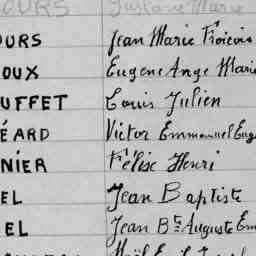 OURS Gustave Marie
OURS Jean Marie François
OUX Eugene Ange Marie
UFFET Louis Julien
ÉARD Victor Emmanuel Eug
NIER Félix Henri
EL Jean Baptiste
EL Jean Bte Auguste Em